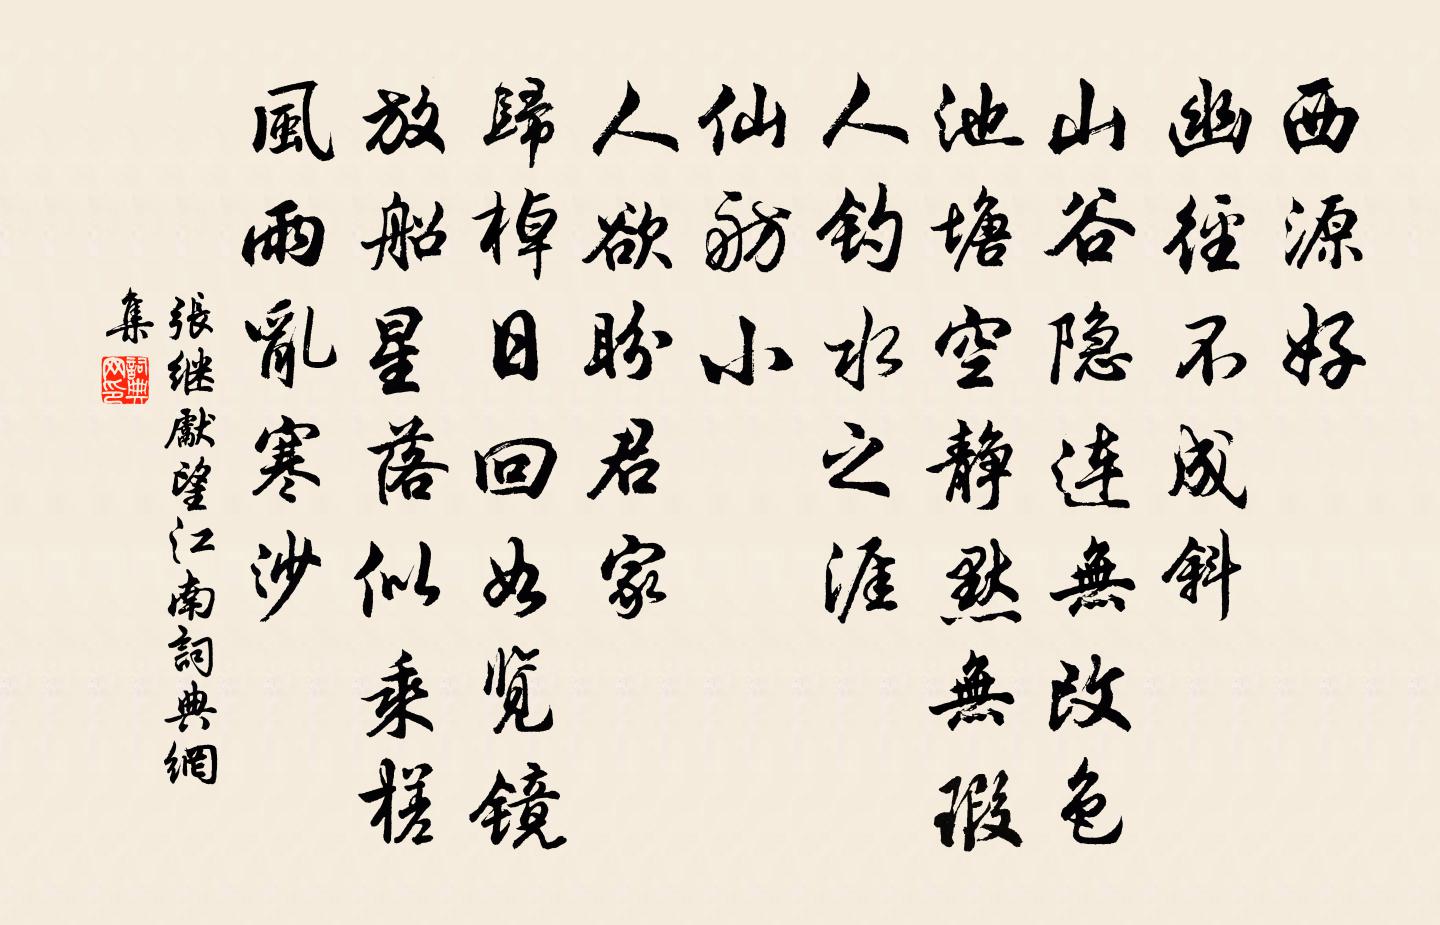 西源好
幽徑不成斜
山谷隐連無改色
池塘空静默無瑕
人钓水之涯
仙舫小
人欲盼君家
歸棹日回如览镜
放船星落似乘槎
風雨亂寒沙
張继獻望江南詞典網
集
詞典網印